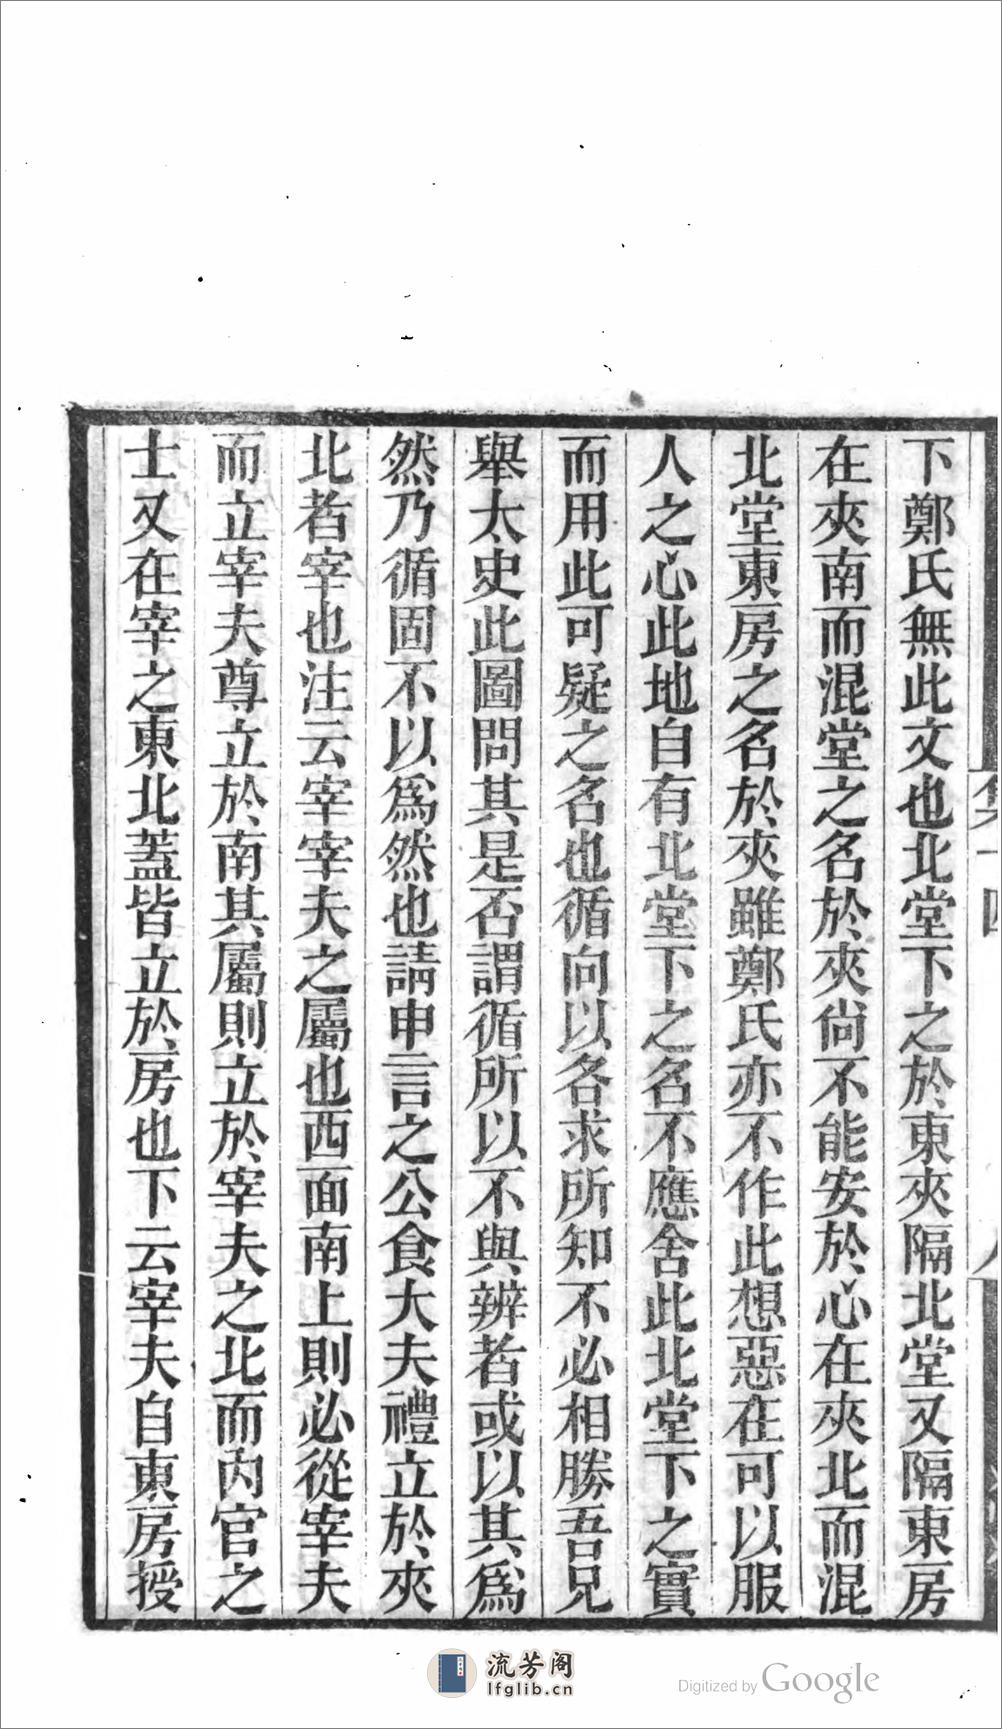 下鄭氏無此文也北堂下之於東夾隔北堂又隔東房
在夾南而混堂之名於夾尙不能安於心在夾北而混
北堂東房之名於夾雖鄭氏亦不作此想惡在可以服
人之心此地自有北堂下之名不應舍此北堂下之實
而用此可疑之名也循向以各求所知不必相勝吾兄
舉太史此圖問其是否謂循所以不與辨者或以其爲
然乃循固不以爲然也請申言之公食大夫禮立於夾
北者宰也注云宰宰夫之屬也西面南上則必從宰夫
而立宰夫尊立於南其屬則立於宰夫之北而內官之
士又在宰之東北蓋皆立於房也下云宰夫自東房授
流芳阁
lfglib.cn
Digitized by Google